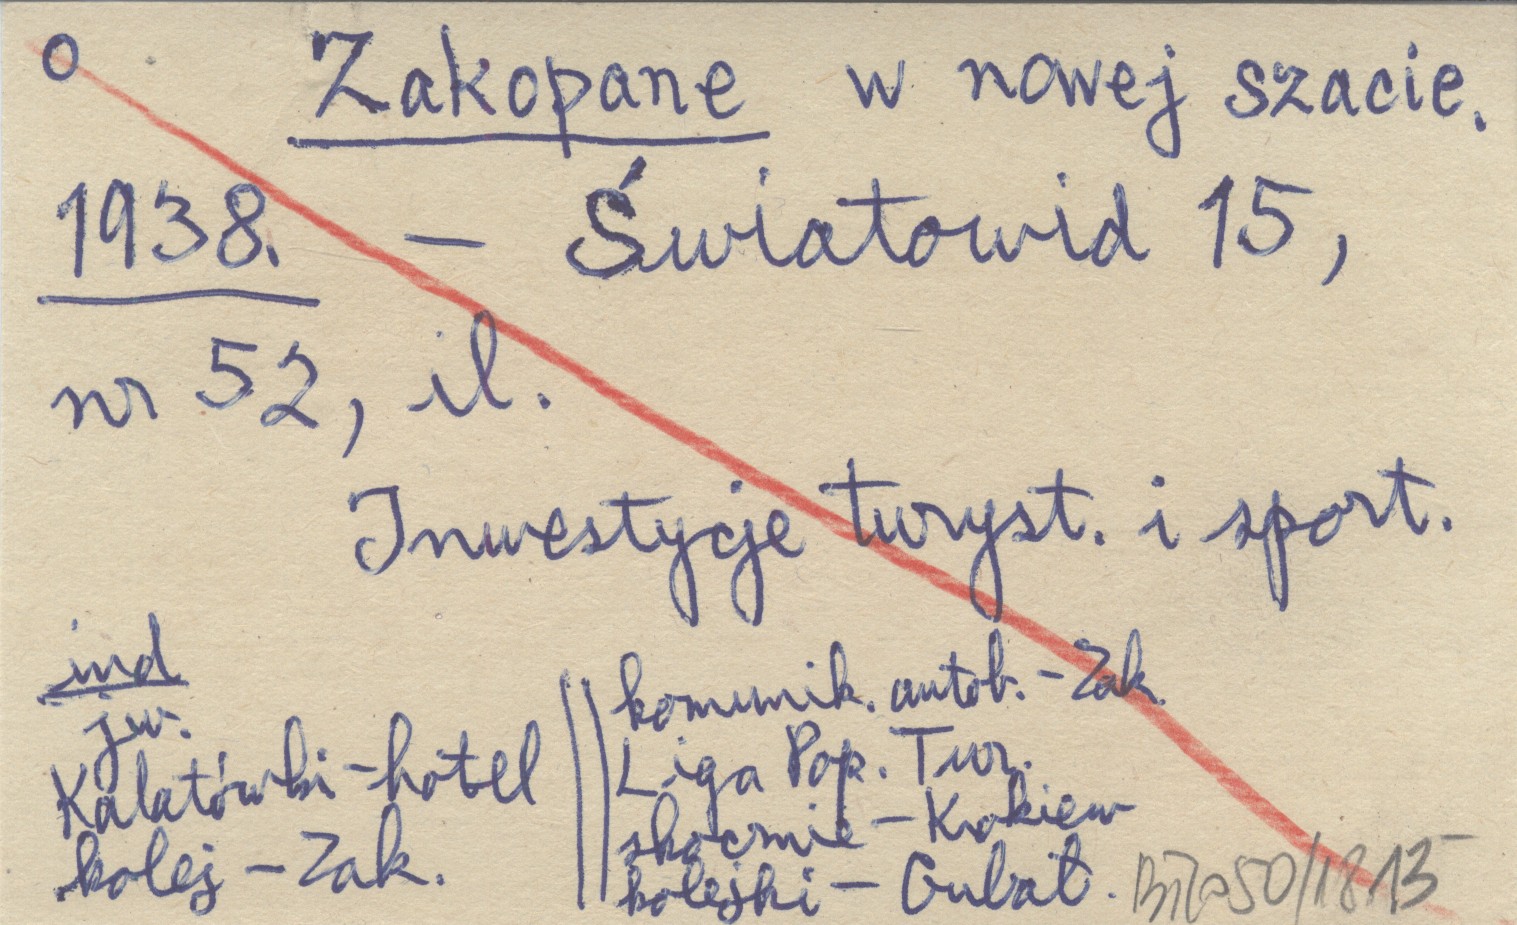 o Zakopane w nowej szacie.
1938. – Światowid 15,
nr 52, il.
Inwestycje turyst. i sport.
ind
jw.
Kalatówki – hotel
kolej – Zak.
komunik. autob. – Zak.
Liga Pop. Tur.
skocznie – Krokiew
kolejki – Gubał.